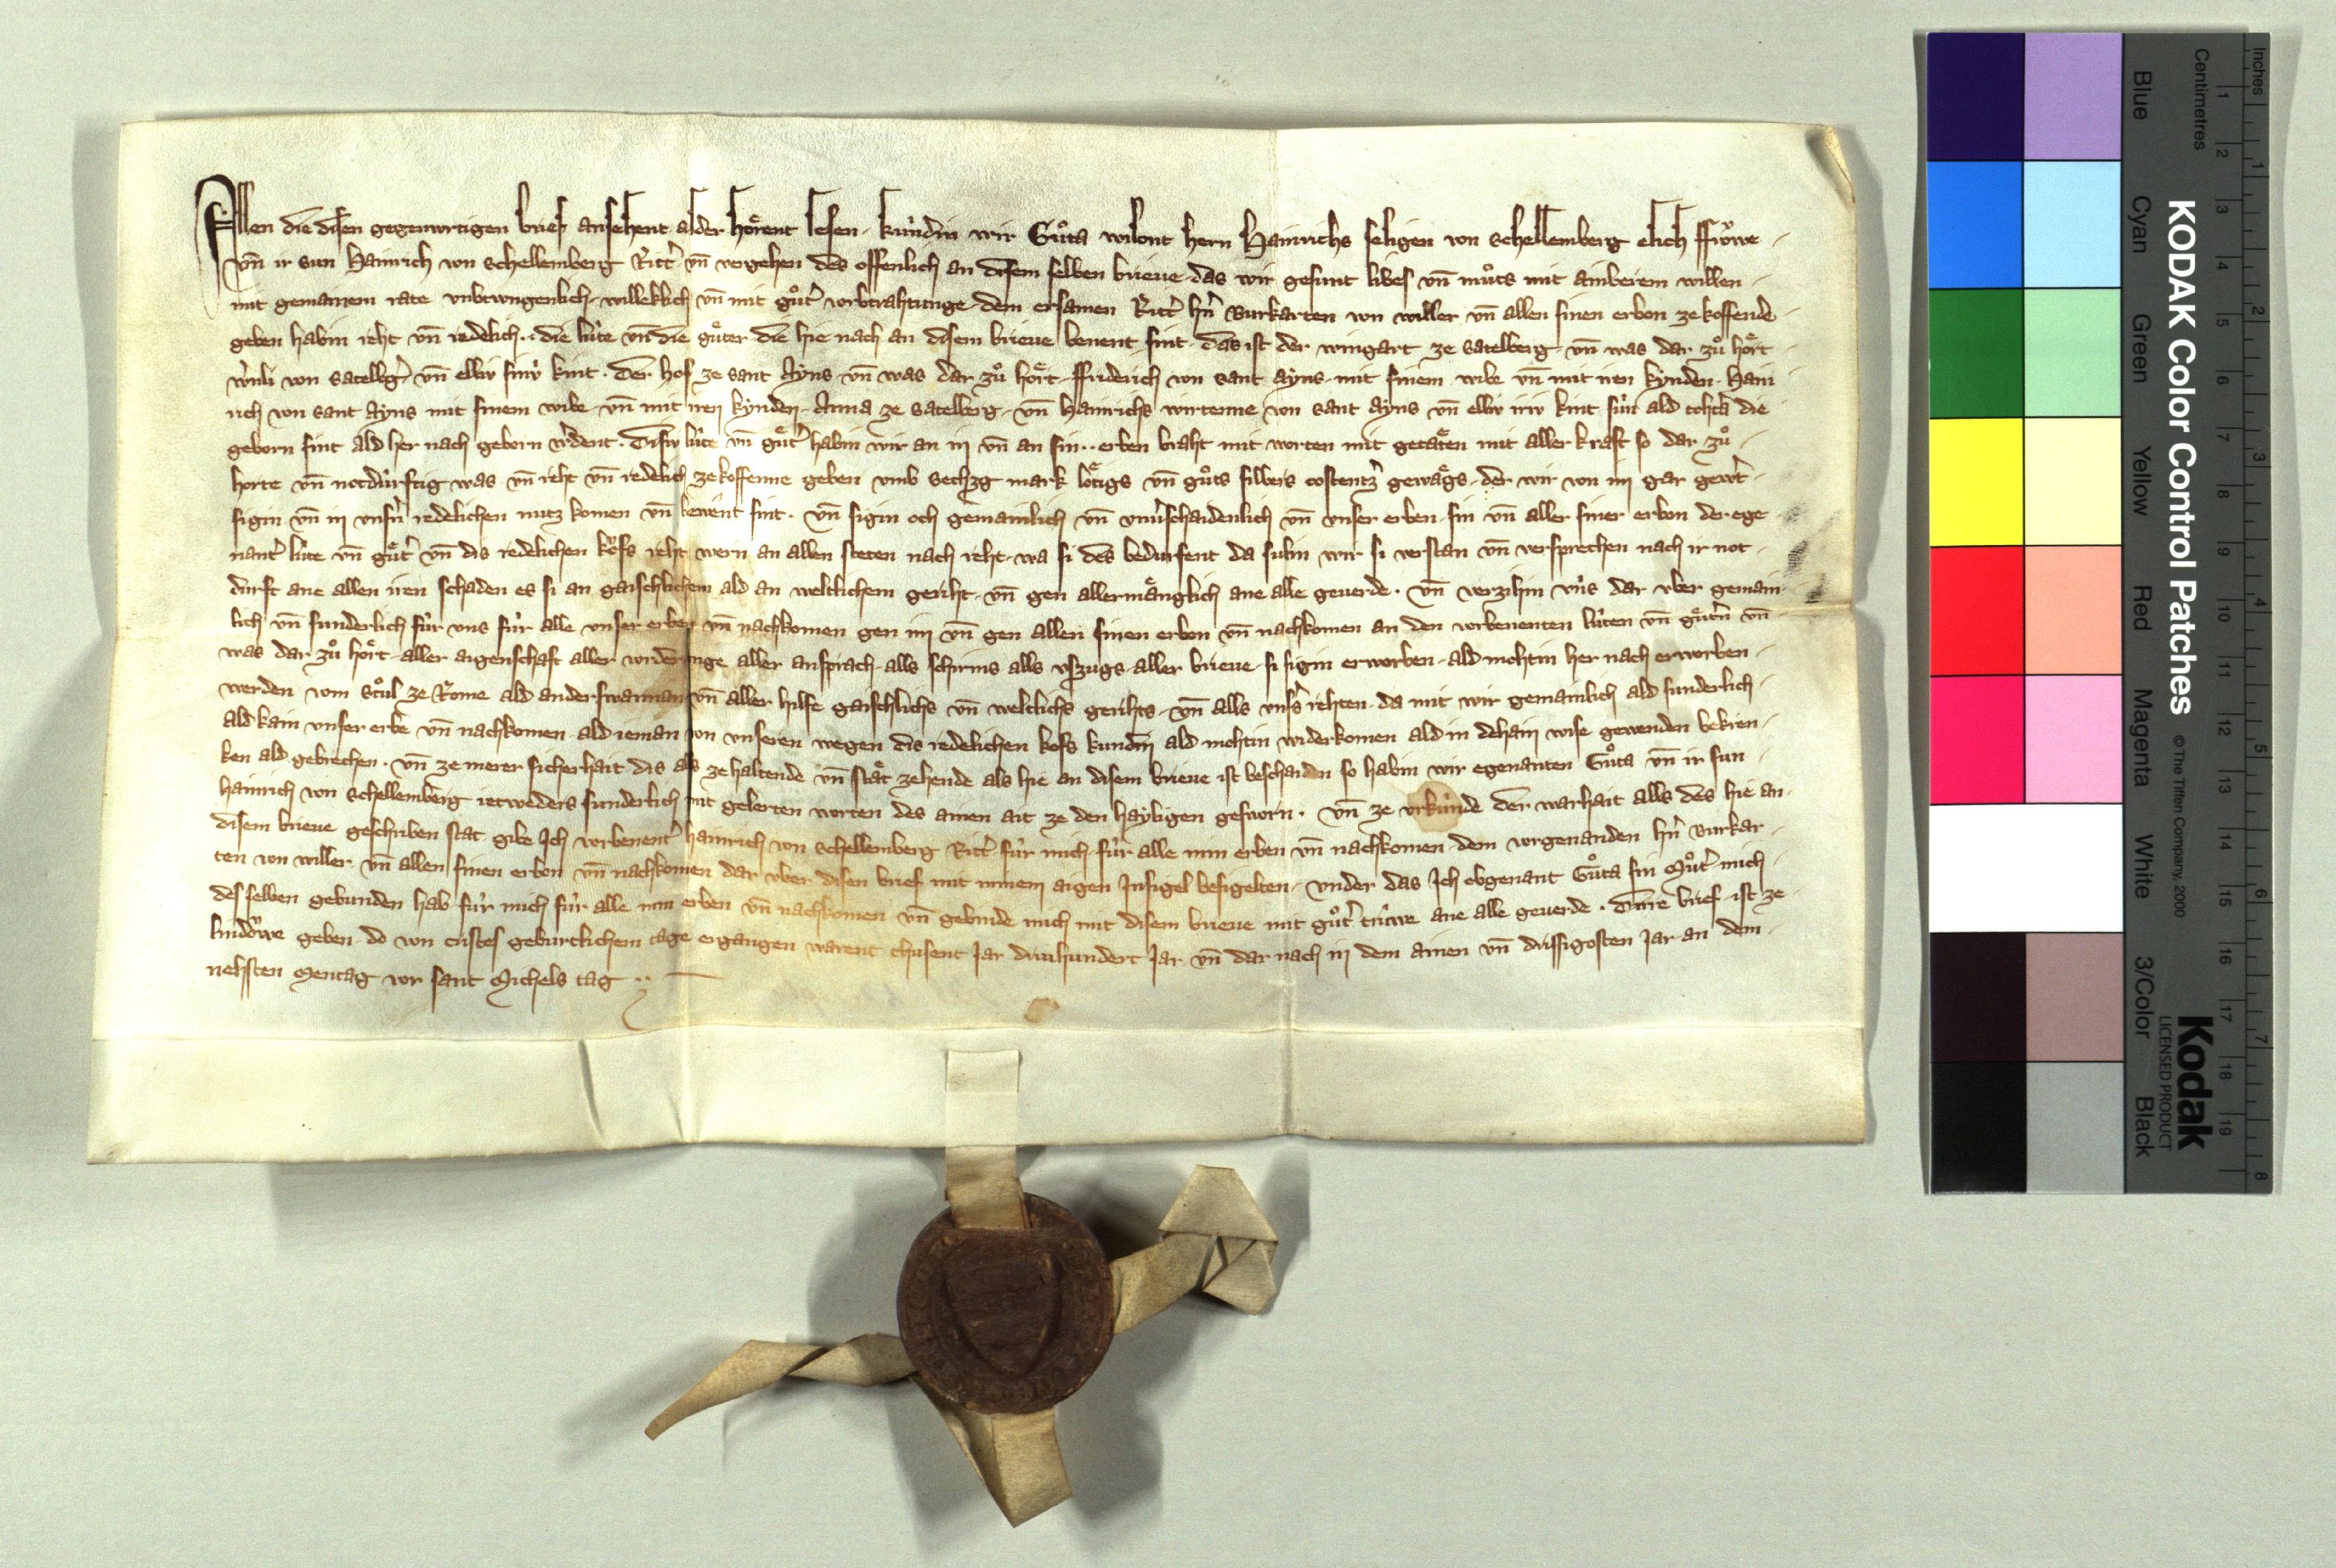 Allen die disen gegenwrtigen brief ansehent alder hoͤrent lesen, kúndin wir Guͦta wilont hern Hainrichs seligen von Schellemberg elich ffroͮwe
vn̄ ir sun Hainrich von Schellemberg Ritt̾ vn̄ vergehen des offenlich an disem selben brieue, das wir gesunt libes vn̄ muͦts mit ainberem willen
mit gemainem rate vnbtwngenlich, willeklich vn̄ mit guͦt̾ vorbtrahtunge, dem ersamen Ritt̾ hn̄ Burkarten von willer vn̄ allen sinen erbon ze koffende
geben habin reht vn̄ redelich.. die lúte vn̄ die guͤter die hie nach an disem brieue benent sint. Das ist der wingart ze Satelberg vn̄ was dar zuͦ hoͤrt
w̾nli von Satelb̾g vn̄ elliv sinv̾ kint. Der hof ze sant Ayns vn̄ was dar zuͦ hoͤrt, ffriderich von sant Ayns mit sinem wibe vn̄ mit iren kynden, Hain
rich von sant Ayns mit sinem wibe vn̄ mit iren kynden, Anna ze Satelberg, vn̄ Hainrichs wirtenne von sant Ayns vn̄ elliv iriv kint, sún ald toht̾a die
geborn sint ald her nach geborn w̾dent. Disiv lúte vn̄ guͤt̾ habin wir an in vn̄ an sin.. erben braht mit worten mit getaͤten mit aller kraft so dar zuͦ
horte vn̄ notdúrftig was vn̄ reht vn̄ redelich ze koffenne geben vmb Sechzg mark loͤtigs vn̄ guͦts silbers costentz̾ gewaͤgs, der wir von im gar gew̾t
sigin vn̄ in vnsn̾ redelichen nutz komen vn̄ bewent sint. Vn̄ sigin och gemainlich vn̄ vnu̾schaidenlich vn̄ vnser erben, sin vn̄ aller siner erbon der ege
nant̾ lúte vn̄ guͤt̾ vn̄ dis redelichen koͮfs reht wern an allen steten nach reht, wa si des bedurfent da súlin wir si verstan vn̄ versprechen nach ir not
durft ane allen iren schaden es si an gaischlichem ald an weltlichem geriht, vn̄ gen allermaͤnglich ane alle geuerde. Vn̄ verzihin v́ns dar vber gemain
lich vn̄ sunderlich fúr vns fúr alle vnser erben vn̄ nachkomen gen im vn̄ gen allen sinen erbon vn̄ nachkomen an den vorbenenten lúten vn̄ guͤtn̾ vn̄
was dar zuͦ hoͤrt, aller aigenschaft aller vorderunge aller ansprach, alls schirms alls vszugs, aller brieue, si sigin erworben, ald mohtin her nach erworben
werden vom stuͦl ze Rome ald anderswannan vn̄ aller hilfe gaischlichs vn̄ weltlichs gerihts, vn̄ alls vnsrs̾ rehten, da mit wir gemainlich ald sunderlich
ald kain vnser erbe vn̄ nachkomen, ald ieman von vnseren wegen dis redelichen kofs kundin ald mohtin widerkomen ald in dehain wise gewenden bekren
ken ald gebrechen. Vn̄ ze merer sicherhait dis als ze haltende vn̄ staͤt zehende als hie an disem brieue ist beschaiden so habin wir egenanten Guͦta vn̄ ir sun
Hainrich von Schellemberg ietweders sunderlich mit gelerten worten des ainen ait ze den hayligen gesworn. Vn̄ ze vrkúnde der warhait alls des hie an
disem brieue geschriben stat, gibe Ich vorbenent̾ Hainrich von Schellemberg Ritt̾ fúr mich fúr alle min erben vn̄ nachkomen dem vorgenanden hn̄ Burkar
ten von willer vn̄ allen sinen erbon vn̄ nachkomen dar vber disen brief mit minem aigen Insigel besigelten, vnder das Ich obgenant Guͦta sin Muͦt̾ mich
des selben gebunden hab fúr mich fúr alle min erben vn̄ nachkomen vn̄ gebinde mich mit disem brieue mit guͦt̾ trúwe ane alle geuerde. Dirre brief ist ze
lindoͮwe geben, do von cristes geburtlichem tage ergangen warent thusent Jar driuhundert Jar vn̄ dar nach in dem ainen vn̄ drissigosten Jar an dem
nehsten Mentag vor sant Michels tag ..
KODAK Color Control Patches © The Tiffen Company, 2000
Kodak
LICENSED PRODUCT
Blue Cyan Green Yellow Red Magenta White 3/Color Black
Inches 1 2 3 4 5 6 7 8
Centimetres 1 2 3 4 5 6 7 8 9 10 11 12 13 14 15 16 17 18 19